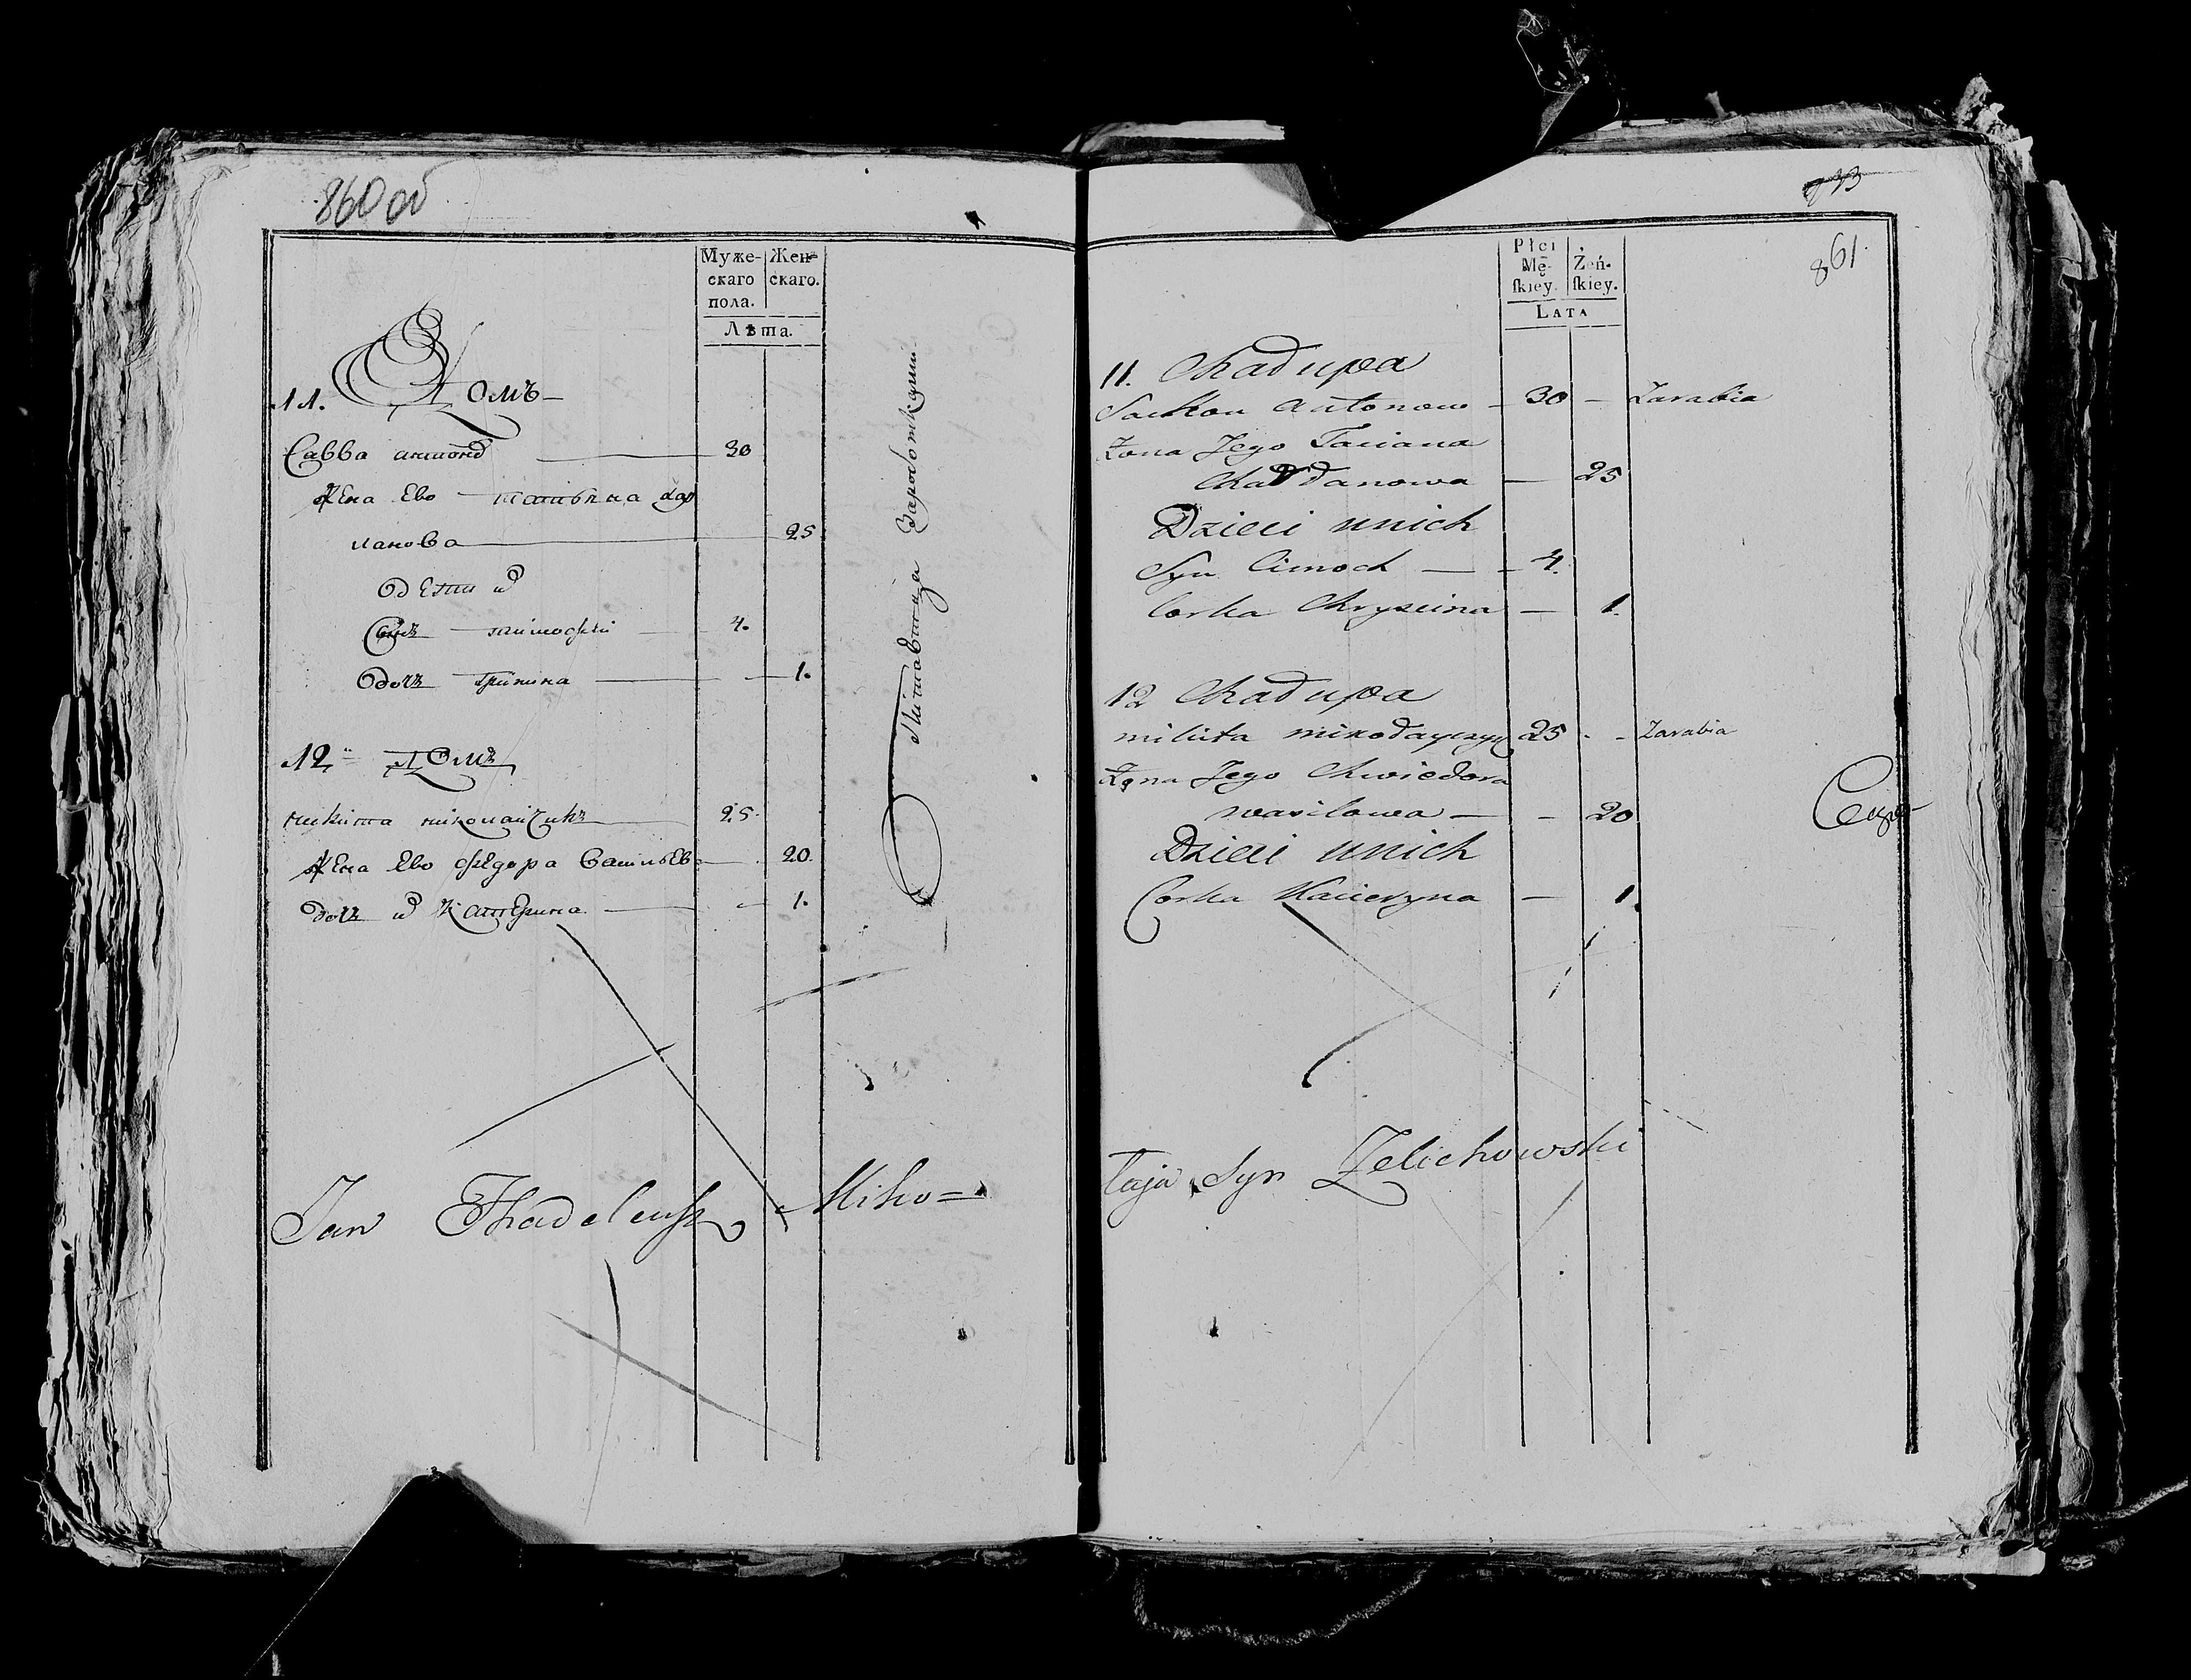 860 об
Муже-
скаго
пола.
Жен-
скаго.
Лѣта.
11. Домъ
Савва антонов 30
жена Ево татьяна
ланова 25
дети
Сынъ тимофѣй 4.
дочь 1.
12 Домъ
никита николайчикъ 25.
жена Ево федора Васильева 20.
дочь Катерина 1.
Jan Thadeusz Miko=
833
861.
Płci
Mę-
ſkiey.
Żeń-
ſkiey.
LATA
11. Chałupa
Antonow 30 Zarabia
Żona Jego Taciana
25
Dzieci unich
Syn Cimoch 4.
Corka Chryscina 1.
12 Chałupa
Mikita Mikołayczyk 25 Zarabia
Żona Jego Chwiedora
Wasilowa 20
Dzieci unich
Corka Kacieryna 1.
łaja Syn Zelichowski